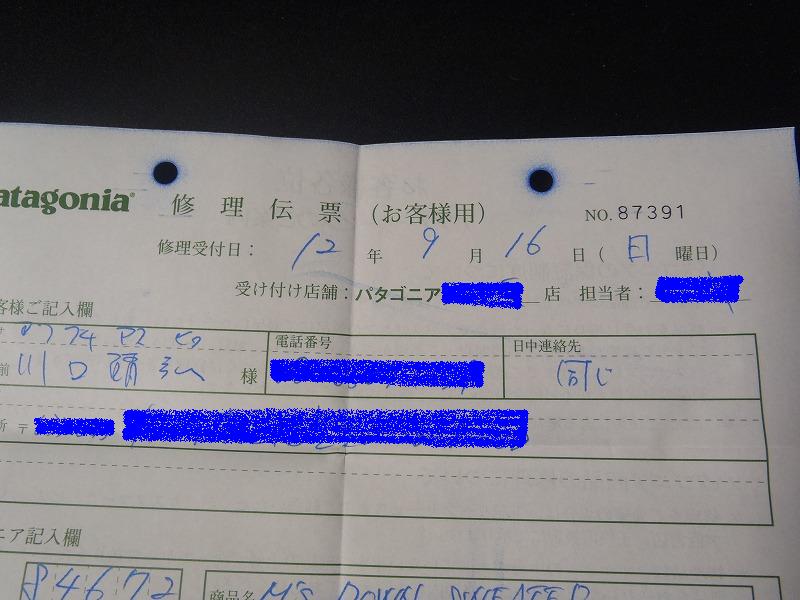 atagonia® 修理伝票（お客様用） NO. 87391
修理受付日： 12 年 9 月 16 日（日 曜日）
受け付け店舗：パタゴニア 店 担当者：
客様ご記入欄
電話番号 日中連絡先
前 川口 靖弘 様 同じ
所 〒
ニア記入欄
84672 商品名 M's DOWN SWEATER